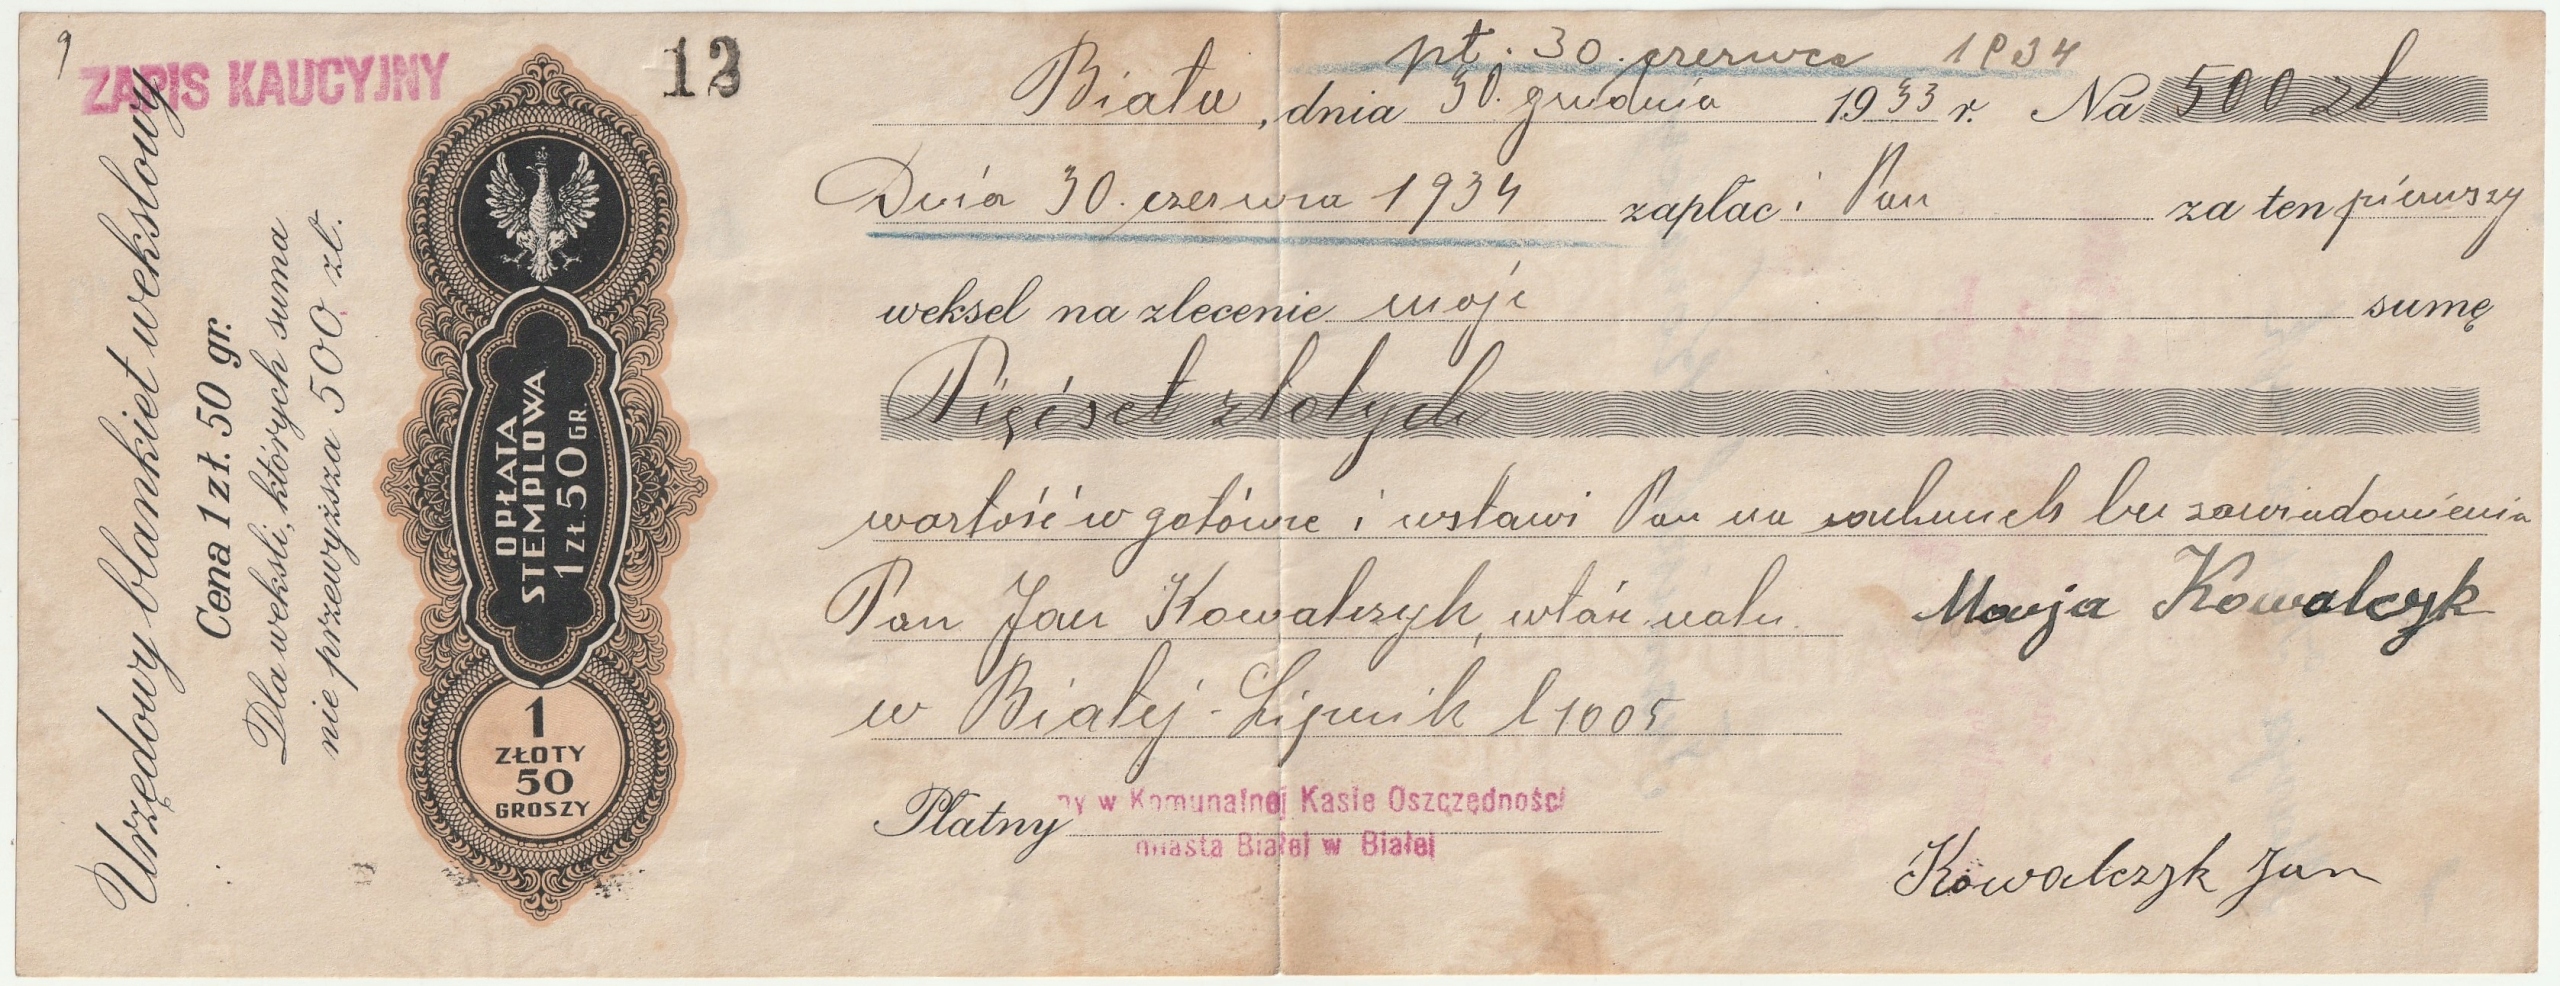 9
ZAPIS KAUCYJNY
12
Urzędowy blankiet wekslowy
Cena 1 zł. 50 gr.
Dla weksli, których suma
nie przewyższa 500 zł.
OPŁATA
STEMPLOWA
1 ZŁ. 50 GR.
1
ZŁOTY
50
GROSZY
pt. 30. czerwca 1934
Biała, dnia 30. grudnia 1933 r. Na 500 zł
Dnia 30. czerwca 1934 zapłaci Pan za ten pierwszy
weksel na zlecenie moje sumę
Pięćset złotych
wartość w gotówce i wstawi Pan na rachunek bez zawiadomienia
Pan Jan Kowalczyk, właśc. realn.
Marja Kowalczyk
w Białej-Lipnik l 1005
Płatny
ny w Komunalnej Kasie Oszczędności
miasta Białej w Białej
Kowalczyk Jan